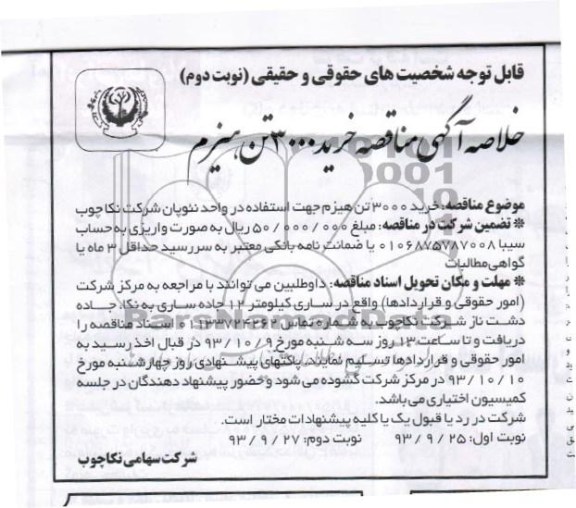 قابل توجه شخصیت های حقوقی و حقیقی (نوبت دوم)
خلاصه آگهی مناقصه خرید ۳۰۰۰ تن هیزم
موضوع مناقصه: خرید ۳۰۰۰ تن هیزم جهت استفاده در واحد نئوپان شرکت نکاچوب
* تضمین شرکت در مناقصه: مبلغ ۵۰/۰۰۰/۰۰۰ ریال به صورت واریزی به حساب
سیبا ۰۱۰۶۸۷۵۷۸۷۰۰۸ یا ضمانت نامه بانکی معتبر به سررسید حداقل ۳ ماه یا
گواهی مطالبات
* مهلت و مکان تحویل اسناد مناقصه: داوطلبین می توانند با مراجعه به مرکز شرکت
(امور حقوقی و قراردادها) واقع در ساری کیلومتر ۱۲ جاده ساری به نکا، جاده
دشت ناز شرکت نکاچوب به شماره تماس اسناد مناقصه را
دریافت و تا ساعت ۱۳ روز سه شنبه مورخ ۹۳/۱۰/۹ در قبال اخذ رسید به
امور حقوقی و قراردادها تسلیم نمایند. پاکتهای پیشنهادی روز چهارشنبه مورخ
۹۳/۱۰/۱۰ در مرکز شرکت گشوده می شود و حضور پیشنهاد دهندگان در جلسه
کمیسیون اختیاری می باشد.
شرکت در رد یا قبول یک یا کلیه پیشنهادات مختار است.
نوبت اول: ۹۳/۹/۲۵ نوبت دوم: ۹۳/۹/۲۷
شرکت سهامی نکاچوب
ParsNamadData